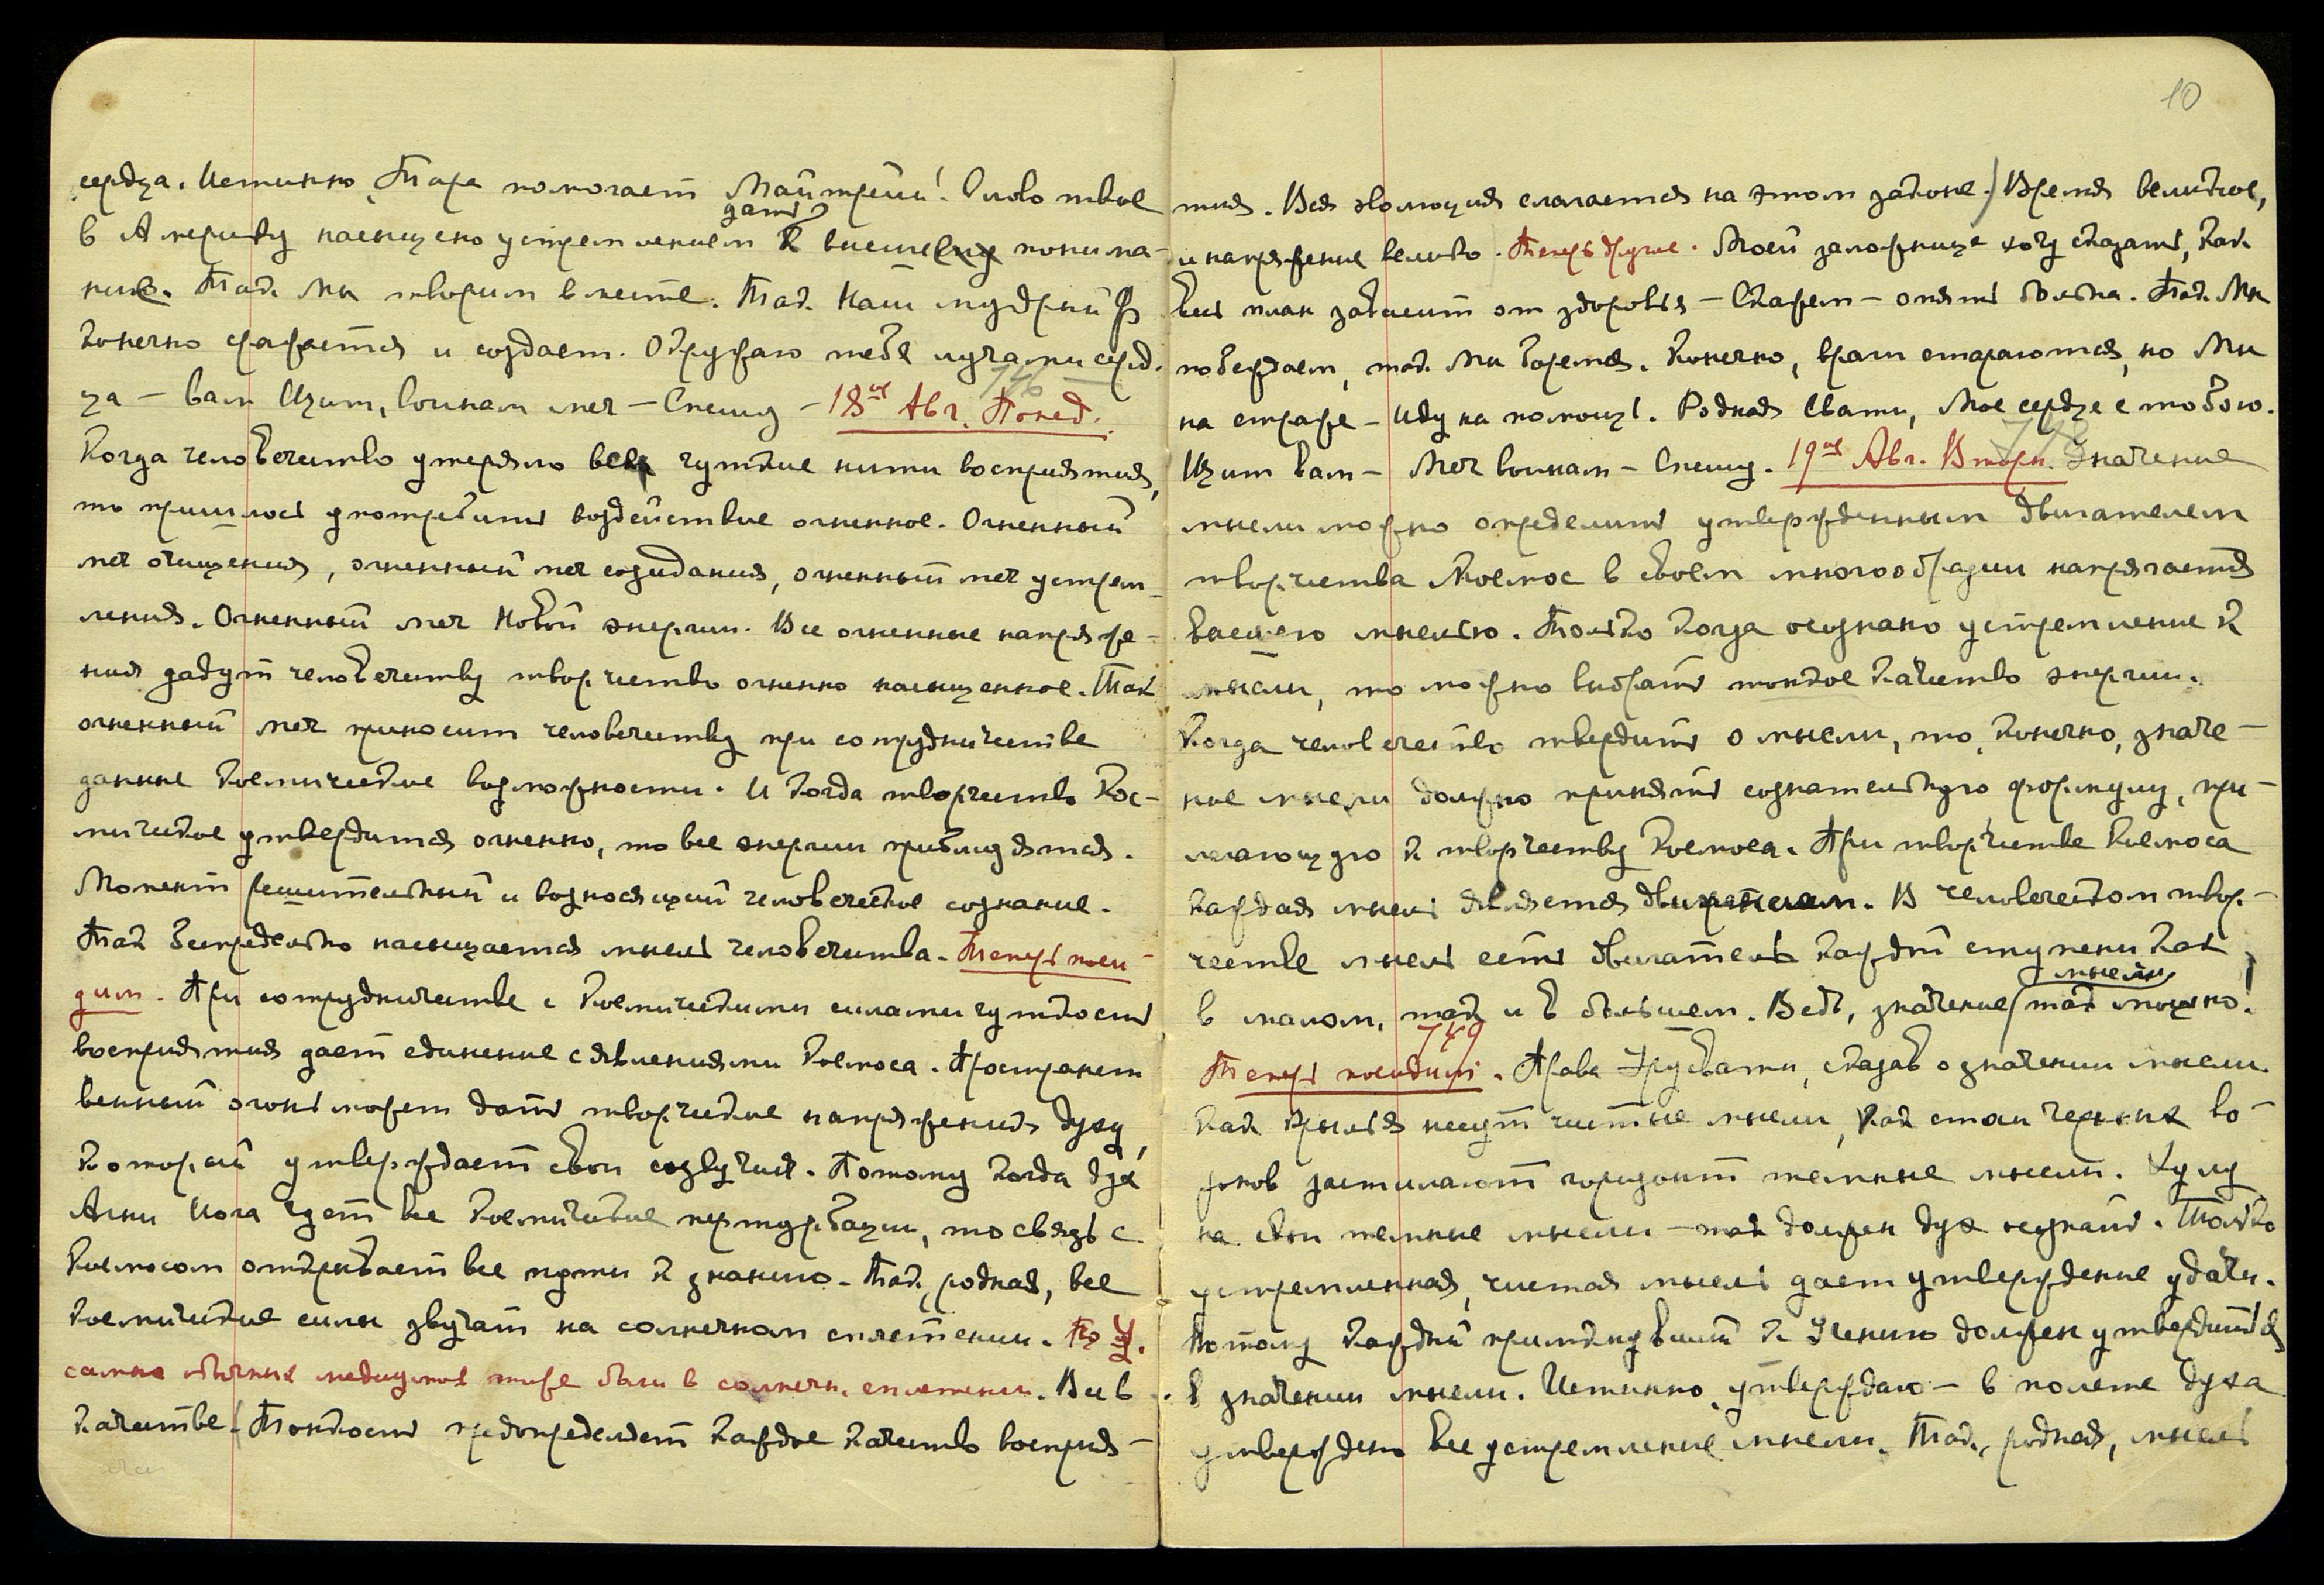 сердца. Истинно, Тара помогает Майтрейи! Слово твое
дать
в Америку насыщено устремлением к высшему понима-
нию. Так Мы творим вместе. Так Наш мудрый Ф
конечно сражается и создает. Окружаю тебя лучами серд-
746
ца – вам Щит, воинам меч – Спешу – 18ое Авг. Понед.
Когда человечество утеряло все чуткие нити восприятия,
то пришлось употребить воздействие огненное. Огненный
меч очищения, огненный меч созидания, огненный меч устрем-
ления. Огненный меч Новой энергии. Все огненные напряже-
ния дадут человечеству творчество огненно насыщенное. Так
огненный меч приносит человечеству при сотрудничестве
данные космические возможности. И когда творчество Кос-
мическое утвердится огненно, то все энергии приблизятся.
Момент решительный и возносящий человеческое сознание.
Так беспредельно насыщается мысль человечества. Теперь поси-
дим. При сотрудничестве с Космическими силами чуткость
восприятия дает единение с явлениями Космоса. Пространст
венный огонь может дать творческие напряжения духу,
который утверждает свои созвучия. Потому когда дух
Агни Йога чует все космические пертурбации, то связь с
Космосом открывает все пути к знанию. Так, родная, все
Космические силы звучат на солнечном сплетении. По У.
самых обычных медиумов тоже были в солнечн. сплетении. Все в
качестве. Тонкость предопределяет каждое качество восприя-
10
тия. Вся эволюция слагается на этом законе. Время великое,
и напряжение велико. Теперь другие. Моей заложнице хочу сказать, как
весь план зависит от здоровья – Скажем – опять битва. Так Мы
побеждаем, так Мы боремся. Конечно, враги стараются, но Мы
на страже – Иду на помощь. Родная Свати, Мое сердце с тобою.
748
Щит вам – Меч воинам – Спешу. 19ое Авг. Вторн. Значение
мысли можно определить утвержденным двигателем
творчества. Космос в своем многообразии напрягается
высшею мыслью. Только когда осознано устремление к
мысли, то можно выбрать тонкое качество энергии.
Когда человечество твердит о мысли, то, конечно, значе-
ние мысли должно принять сознательную формулу, при-
лагающую к творчеству Космоса. При творчестве Космоса
каждая мысль является движением. В человеческом твор-
честве мысль есть двигатель каждой ступени как
мысли
в малом, так и в большем. Ведь, значение так мощно!
749
Теперь посидим. Права Урусвати, сказав о значении мысли.
Как крылья несут чистые мысли, как стаи черных во-
ронов застилают горизонт темные мысли. Хулу
на свои темные мысли – так должен дух осознать. Только
устремленная, чистая мысль дает утверждение удачи.
Потому каждый примкнувший к Учению должен утвердиться
в значении мысли. Истинно, утверждаю – в полете духа
утверждено все устремление мысли. Так, родная, мысль